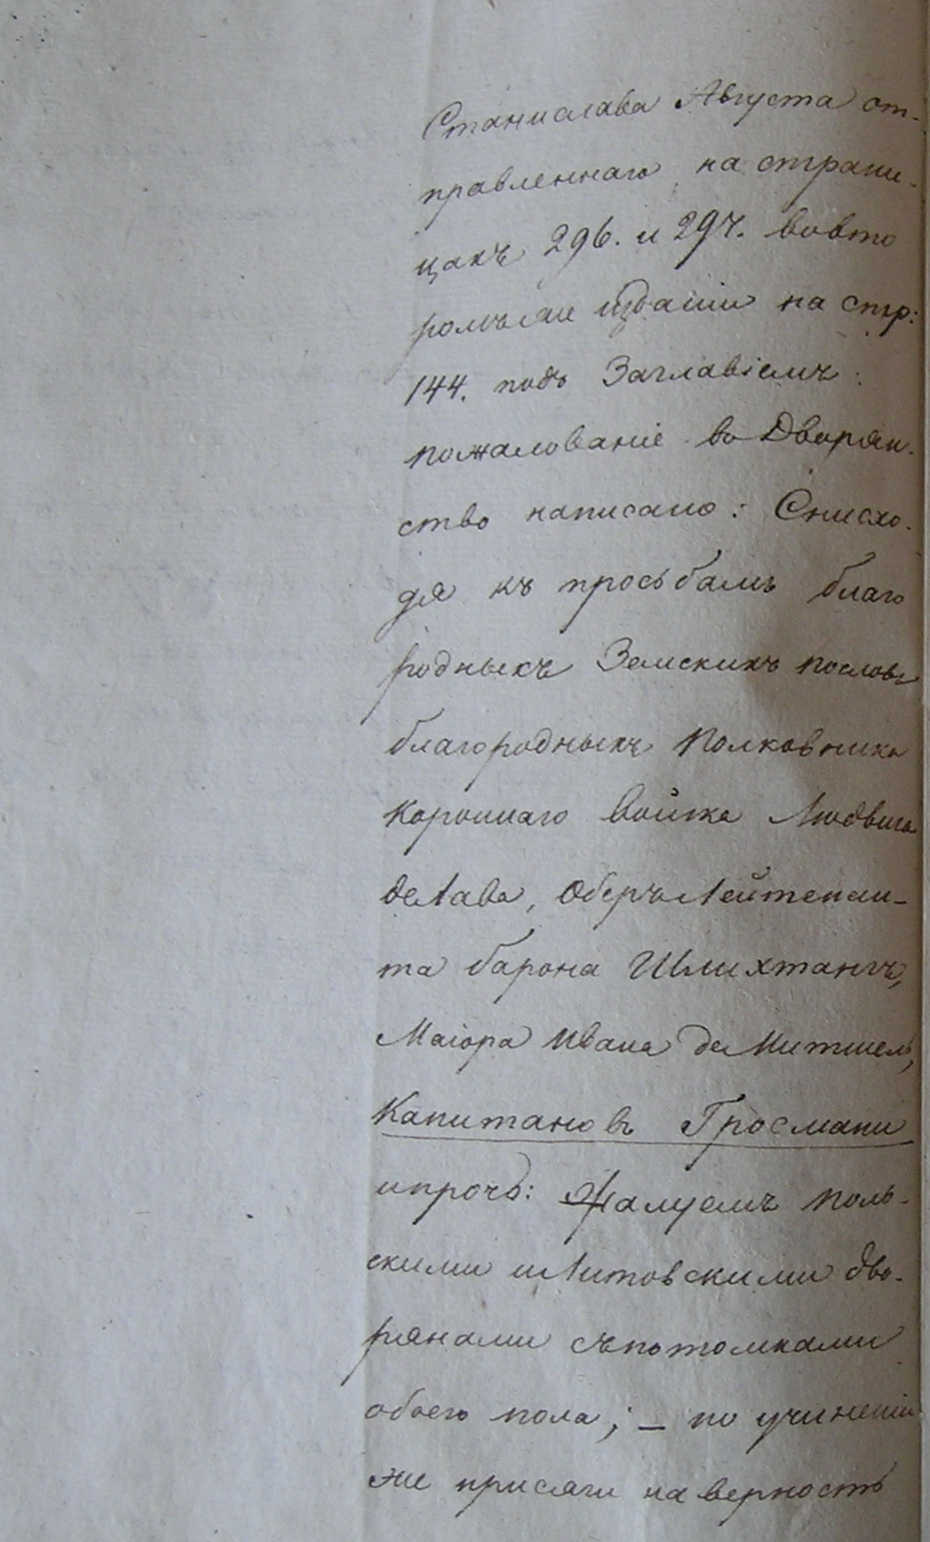 Станислава Августа от-
правленнаго на страни-
цахъ 296. и 297. вовто
ромъже изданiи на стр:
144. подъ Заглавiемъ:
пожалованiе во Дворян-
ство написано: Снисхо-
дя къ просьбамъ благо
родныхъ Земскихъ пословъ
благородныхъ Полковника
Короннаго войска Людвига
деЛава, ОберъЛейтенан-
та барона Шлихтангъ,
Маiора Ивана деМитшель,
Капитановъ Гросмани
ипрочъ: Жалуемъ поль-
скими иЛитовскими дво-
рянами съпотомками
обоего пола; — по учиненiи
же присяги на верность